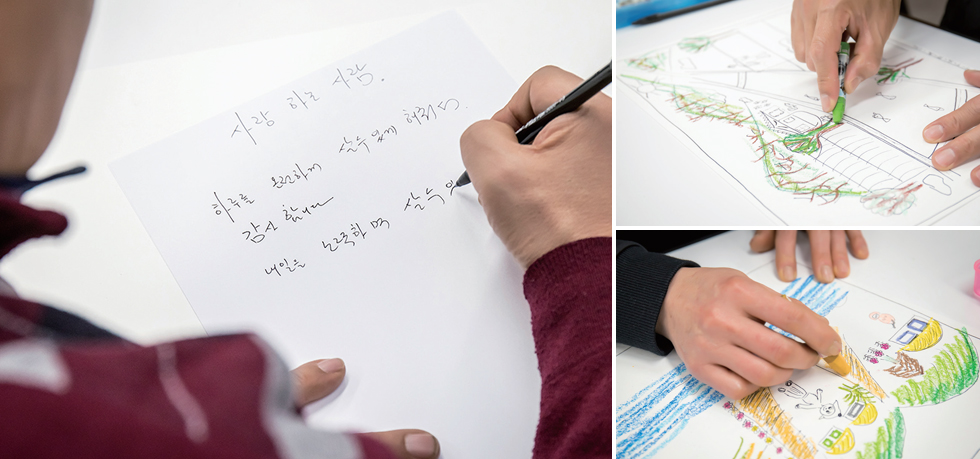 사랑 하는 사람.
하루를 온전하게 살수 있게 허락되
감사 합니다
내일을 노력하며 살수 있